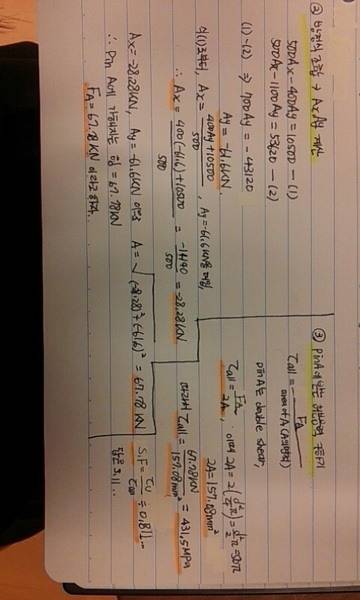 ② 방정식 조합 → Ax, Ay 계산
500Ax - 400Ay = 10500 — (1)
500Ax - 1100Ay = 53620 — (2)
(1) - (2) ⇒ 700Ay = -43120
Ay = -61.6KN
식(1)로부터, Ax = 400Ay + 10500 / 500, Ay = -61.6KN을 대입,
∴ Ax = 400(-61.6) + 10500 / 500 = -14140 / 500 = -28.28KN
Ax = -28.28KN, Ay = -61.6KN 이므로 A = √(-28.28)²+(-61.6)² = 67.78 KN
∴ Pin A에 가해지는 힘 = 67.78KN
FA = 67.78 KN 이라고 하자.
③ Pin A에 받는 전단응력 구하기
τall = FA / area of A (A의 면적)
pin A는 double shear,
τall = FA / 2A, 이때 2A = 2(d²/4 π) = d²/2 π = 50π
2A = 157.08mm²
따라서 τall = 67.78KN / 157.08mm² = 431.5MPa
S.F = τu / τall ≒ 0.811..
답은 3.11..